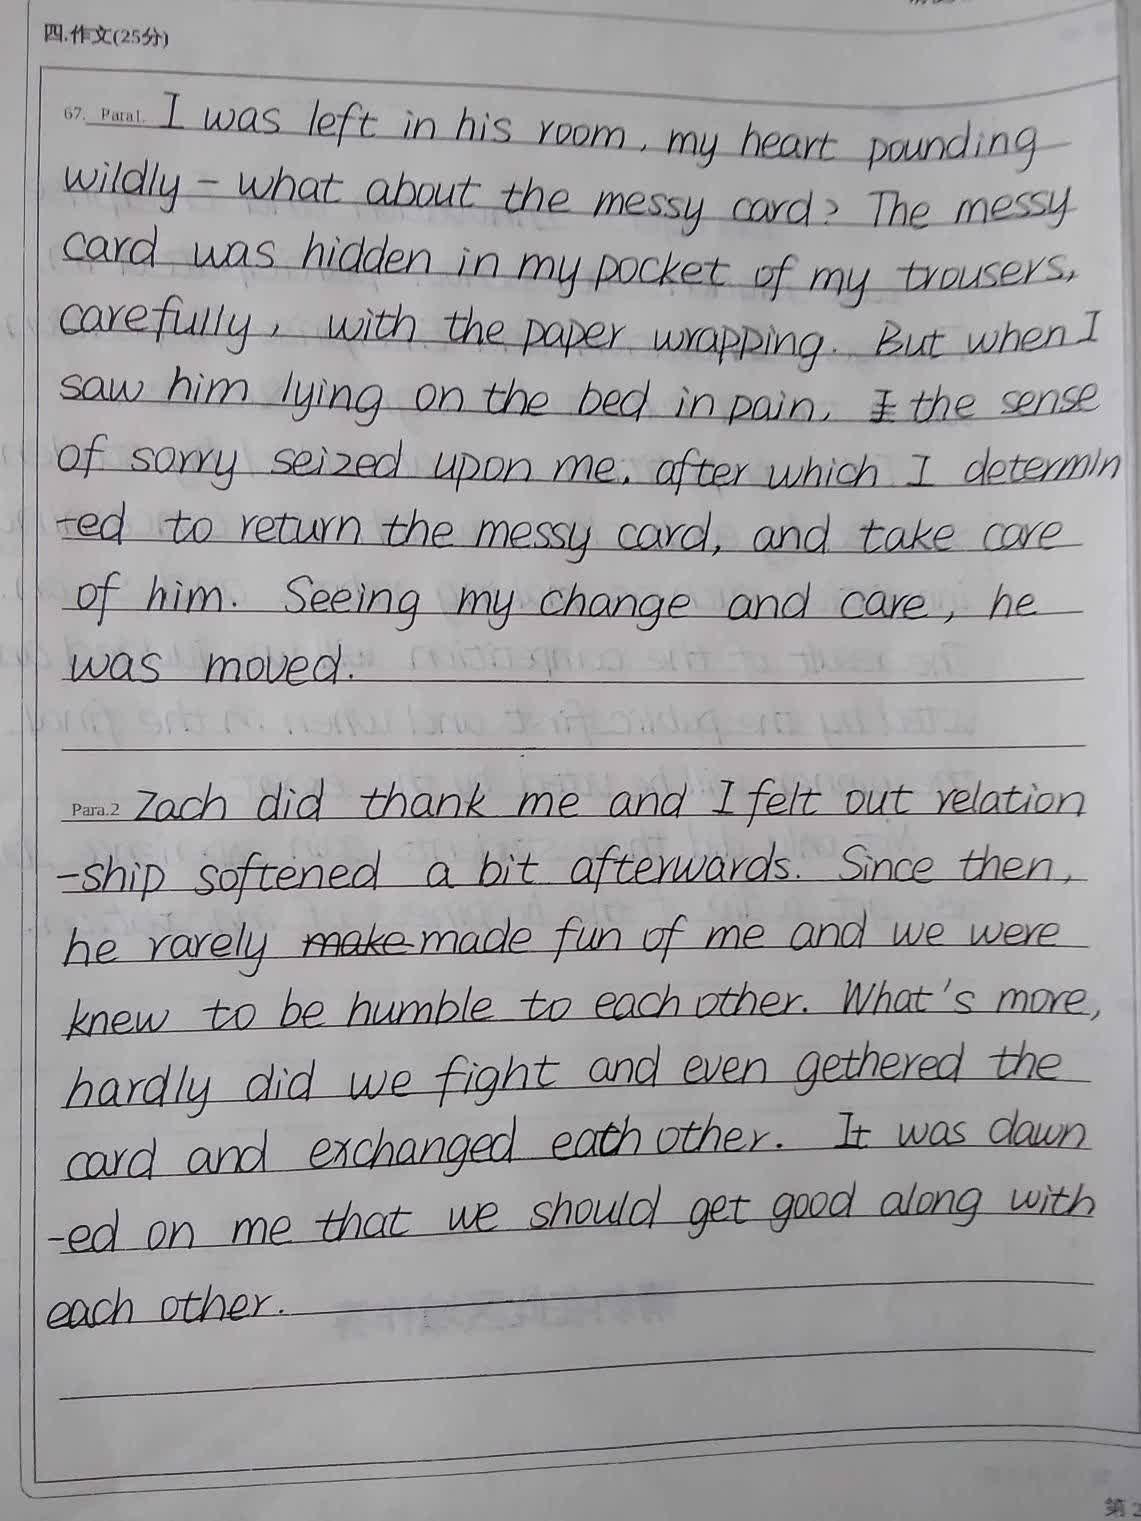 四.作文(25分)
67. Para1. I was left in his room, my heart pounding
wildly - what about the messy card? The messy
card was hidden in my pocket of my trousers,
carefully, with the paper wrapping. But when I
saw him lying on the bed in pain, I the sense
of sorry seized upon me, after which I determin
-ed to return the messy card, and take care
of him. Seeing my change and care, he
was moved.
Para.2 Zach did thank me and I felt out relation
-ship softened a bit afterwards. Since then,
he rarely make made fun of me and we were
knew to be humble to each other. What's more,
hardly did we fight and even gethered the
card and exchanged each other. It was dawn
-ed on me that we should get good along with
each other.
第2